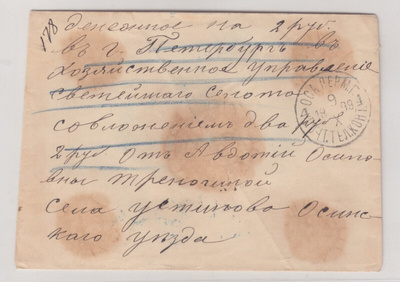 178
денежное на 2 руб
въ г. Петербургъ въ
Хозяйственное управление
светейшаго Сенота
совложениемъ два ру
2 руб Отъ Авдотiи Осипо
вной
села устиново Осинс
каго уѣзда
ОСА ПЕРМ. Г.
9
X